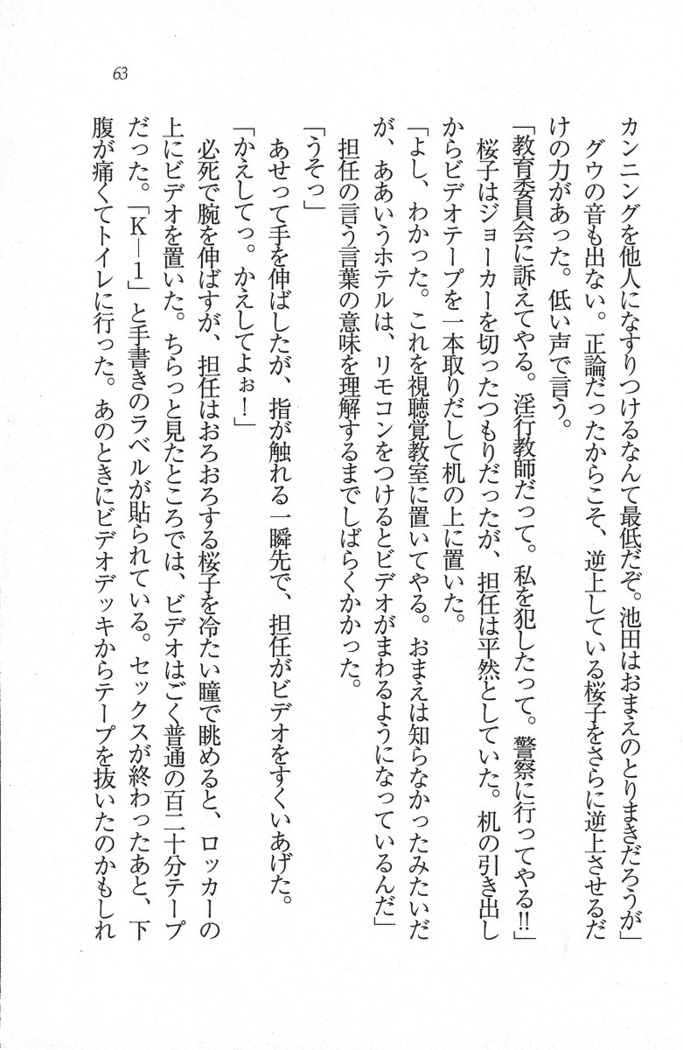 63
カンニングを他人になすりつけるなんて最低だぞ。池田はおまえのとりまきだろうが」
グウの音も出ない。正論だったからこそ、逆上している桜子をさらに逆上させるだ
けの力があった。低い声で言う。
「教育委員会に訴えてやる。淫行教師だって。私を犯したって。警察に行ってやる!!」
桜子はジョーカーを切ったつもりだったが、担任は平然としていた。机の引き出し
からビデオテープを一本取りだして机の上に置いた。
「よし、わかった。これを視聴覚教室に置いてやる。おまえは知らなかったみたいだ
が、ああいうホテルは、リモコンをつけるとビデオがまわるようになっているんだ」
担任の言う言葉の意味を理解するまでしばらくかかった。
「うそっ」
あせって手を伸ばしたが、指が触れる一瞬先で、担任がビデオをすくいあげた。
「かえしてっ。かえしてよぉ！」
必死で腕を伸ばすが、担任はおろおろする桜子を冷たい瞳で眺めると、ロッカーの
上にビデオを置いた。ちらっと見たところでは、ビデオはごく普通の百二十分テープ
だった。「K―1」と手書きのラベルが貼られている。セックスが終わったあと、下
腹が痛くてトイレに行った。あのときにビデオデッキからテープを抜いたのかもしれ